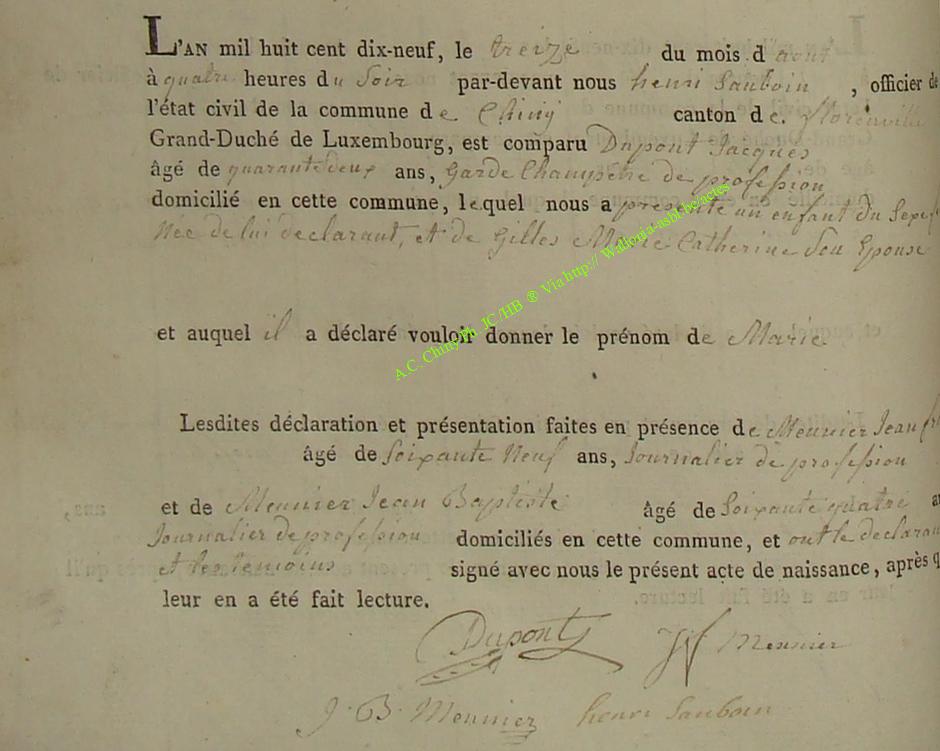 L'AN mil huit cent dix-neuf, le treize du mois d'aout
à quatre heures du Soir par-devant nous henri Sauboin, officier de
l'état civil de la commune de Chiny canton de. florenville
Grand-Duché de Luxembourg, est comparu Dupont Jacques
âgé de quarante deux ans, Garde Champetre de profession
domicilié en cette commune, lequel nous a presenté un enfant du Sexe
Née de lui declarant, et de Gilles Marie Catherine Son Epouse
et auquel il a déclaré vouloir donner le prénom de Marie
Lesdites déclaration et présentation faites en présence de Meunier Jean
âgé de Soixante Neuf ans, Journalier de profession
et de Meunier Jean Baptiste âgé de Soixante quatre
Journalier de profession domiciliés en cette commune, et ont le declarant
et les temoins signé avec nous le présent acte de naissance, après q
leur en a été fait lecture.
Dupont Meunier
J. B. Meunier henri Sauboin
A.C. Chiny Ph. JC/HB ® Via http:// Wallonia-asbl.be/actes